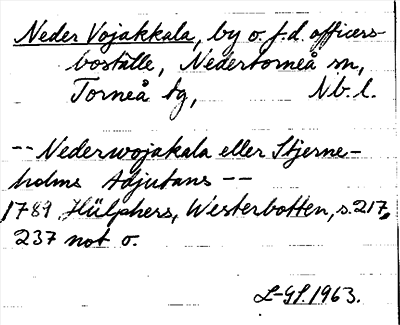 Neder Vojakkala, by o. f.d. officers-
boställe, Nedertorneå sn,
Torneå tg, Nb. l.
-- Nederwojakala eller Stjerne-
holms Adjutans --
1789 Hülphers, Westerbotten, s. 217,
237 not o.
L-GS. 1963.